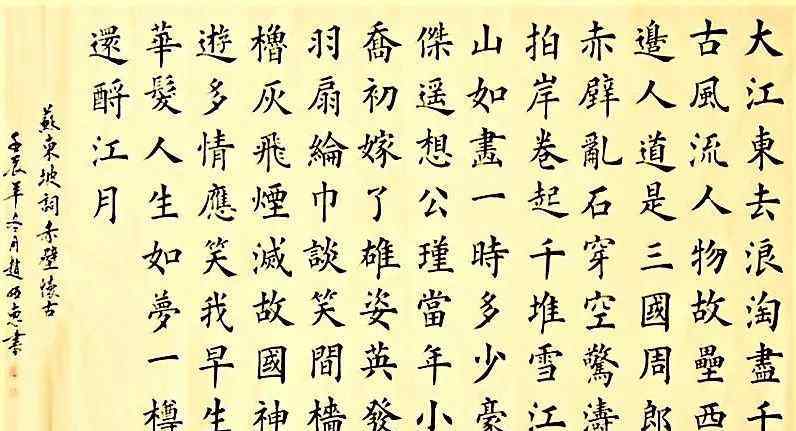 大江東去浪淘盡千
古風流人物故壘西
邊人道是三國周郎
赤壁亂石穿空驚濤
拍岸卷起千堆雪江
山如畫一時多少豪
傑遥想公瑾當年小
喬初嫁了雄姿英發
羽扇綸巾談笑間檣
櫓灰飛煙滅故國神
遊多情應笑我早生
華髮人生如夢一樽
還酹江月
蘇東坡詞赤壁懷古
壬辰年冬月趙書